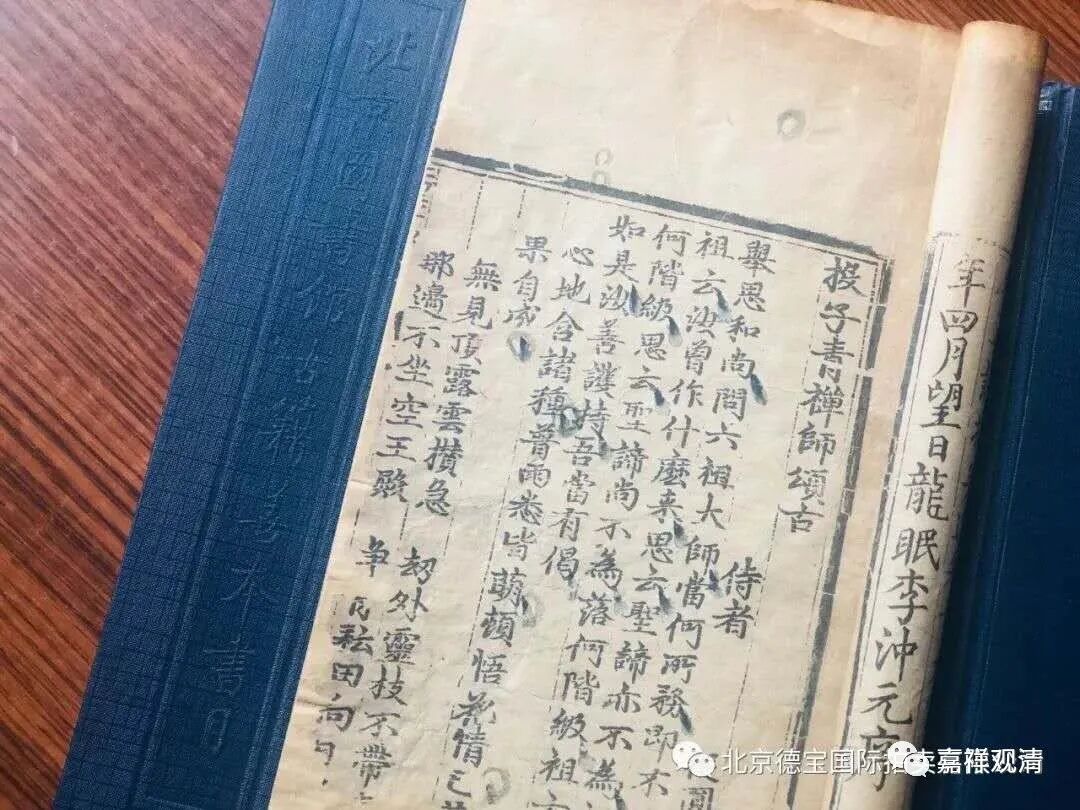 年四月望日龍眠李沖元序
投子青禪師頌古
侍者
舉思和尚問六祖大師當何所務即不
祖云汝曾作什麼来思云聖諦亦不為
何階級思云聖諦尚不為落何階級祖
如是汝善護持吾當有偈
心地含諸種普雨悉皆萌頓悟花情已
果自成
無見頂露雲攢急 劫外靈枝不帶
那邊不坐空王殿 爭 耘田向日
北京圖書館古籍善本書目
北京德宝国际拍卖
嘉禅观清